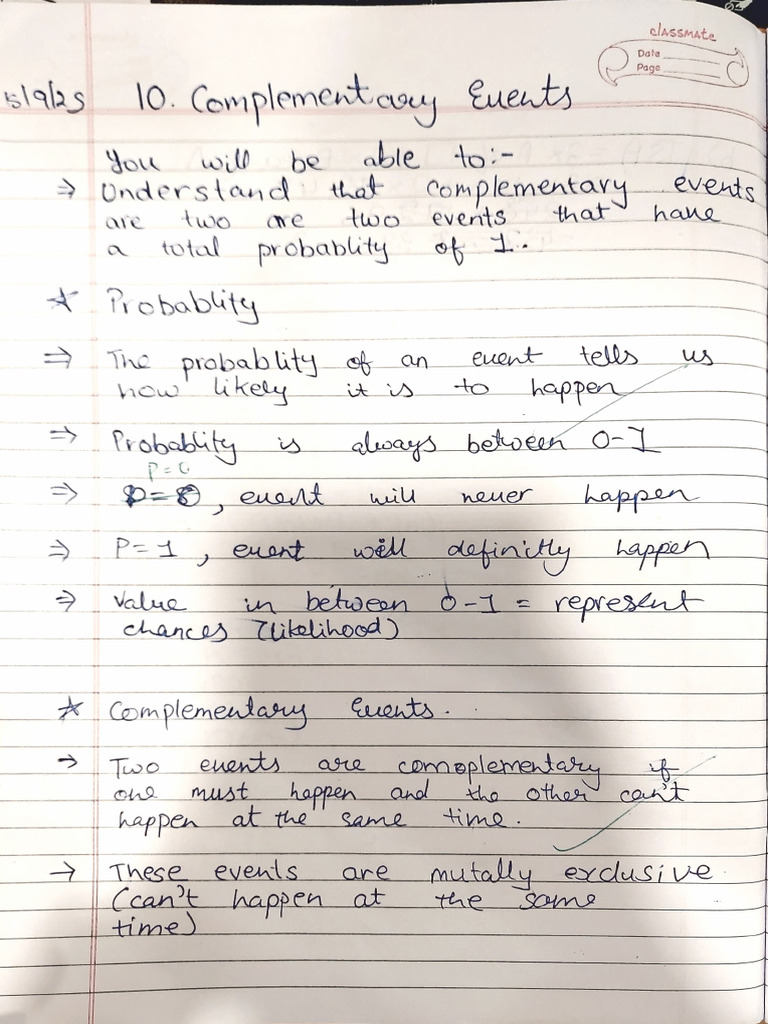 classmate
Date
Page
15/9/25 10. Complementary Events
You will be able to:-
⇒ Understand that complementary events
are two are two events that have
a total probablity of 1.
☆ Probablity
⇒ The probablity of an event tells us
how likely it is to happen
⇒ Probablity is always between 0-1
P=0
⇒ P=0, event will never happen
⇒ P=1, event will definitly happen
⇒ Value in between 0-1 = represent
chances (likelihood)
☆ Complementary Events.
→ Two events are comoplementary if
one must happen and the other can't
happen at the same time.
→ These events are mutally exclusive
(can't happen at the same
time)